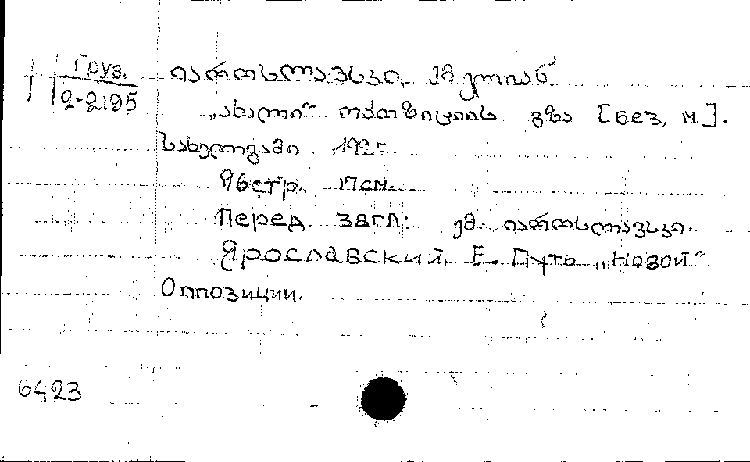 Груз.
2-2195
იაროსლავსკი, ემელიან
„ახალი“ ოპოზიციის გზა [без, м].
სახელგამი 192
96стр. 17см.
Перед загл: ემ. იაროსლავსკი.
Ярославский, Е. Путь „новой“
Оппозиции.
6423